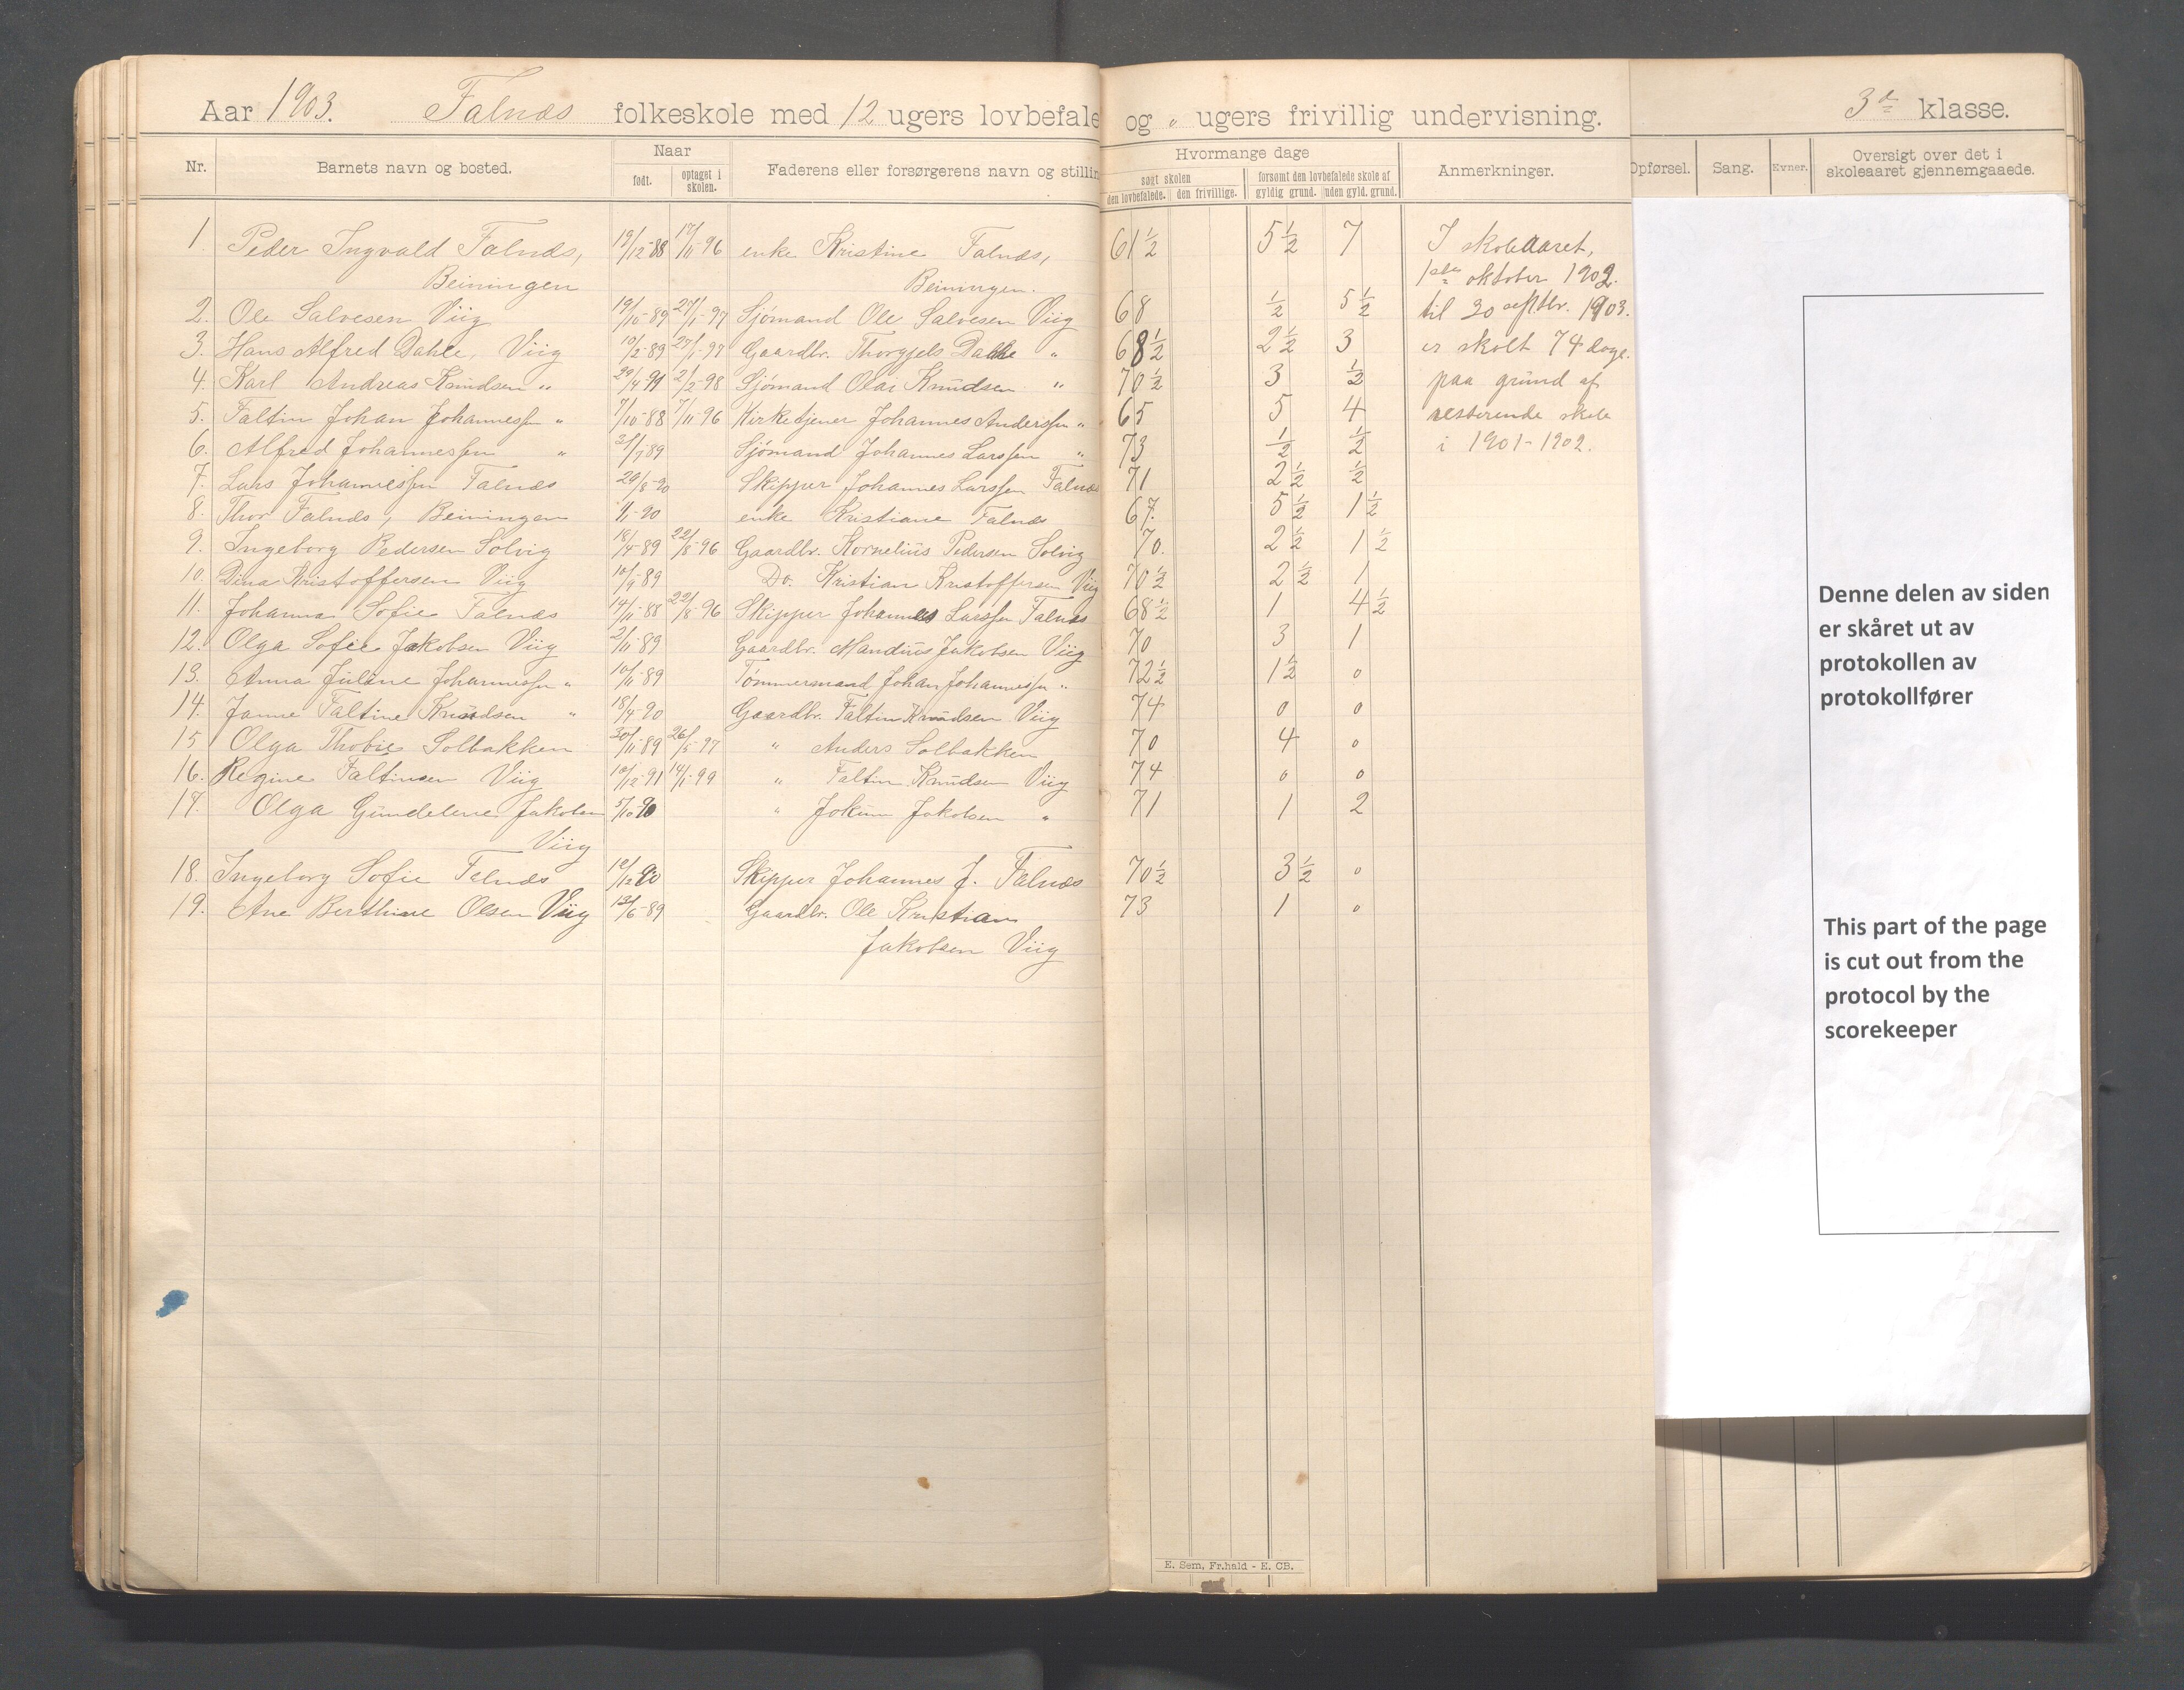 Aar 1903. Falnæs folkeskole med 12 ugers lovbefale og " ugers frivillig undervisning. 3de klasse.
Nr. Barnets navn og bosted. Naar født. optaget i skolen. Faderens eller forsørgerens navn og stillin Hvormange dage søgt skolen den lovbefalede. den frivillige. forsømt den lovbefalede skole af gyldig grund. uden gyld. grund. Anmerkninger. Opførsel. Sang. Evner. Oversigt over det i skoleaaret gjennemgaaede.
1 Peder Ingvald Falnæs, 19/12-88 17/11-96 enke Kristine Falnæs, 61 1/2 5 1/2 7 I skoleaaret,
Beiningen Beiningen. 1ste oktober 1902.
2. Ole Salvesen Viig 19/10-89 27/1-97 Sjømand Ole Salvesen Viig 68 1/2 5 1/2 til 30 septbr. 1903.
3. Hans Alfred Dahle, Viig 10/2-89 27/1-97 Gaardbr. Thorgjels Dahle " 68 1/2 2 1/2 3 er skolt 74 dage.
4. Karl Andreas Knudsen " 29/4-91 2/2-98 Sjømand Olai Knudsen " 70 1/2 3 1/2 paa grund af
5. Faltin Johan Johannessen " 7/10-88 7/11-96 Kirketjener Johannes Anderssen " 65 5 4 resterende skole
6. Alfred Johannessen " 31/7 89 Sjømand Johannes Larssen " 73 1/2 1/2 i 1901-1902.
7. Lars Johannessen Falnæs 29/8-90 Skipper Johannes Larssen Falnæs 71 2 1/2 1/2
8. Thor Falnæs, Beiningen 1/1-90 enke Kristiane Falnæs 67. 5 1/2 1 1/2
9. Ingeborg Pedersen Solvig 18/4-89 22/8-96 Gaardbr. Kornelius Pedersen Solvig 70. 2 1/2 1 1/2
10. Dina Kristoffersen Viig 10/9-89 Do. Kristian Kristoffersen Viig 70 1/2 2 1/2 1
11. Johanna Sofie Falnæs 14/11-88 22/8-96 Skipper Johannes Larssen Falnæs 68 1/2 1 4 1/2
12. Olga Sofie Jakobsen Viig 2/11-89 Gaardbr. Mandius Jakobsen Viig 70 3 1
13. Anna Juline Johannessen " 10/11-89 Tømmermand Johan Johannessen " 72 1/2 1 1/2 0
14. Janne Faltine Knudsen " 18/4-90 Gaardbr. Faltin Knudsen Viig 74 0 0
15 Olga Thobie Solbakken 30/11-89 26/5-97 " Anders Solbakken 70 4 0
16. Regine Faltinsen Viig 10/12-91 14/1-99 " Faltin Knudsen Viig 74 0 0
17. Olga Gundelene Jakobsen 5/10-90 " Jokum Jakobsen " 71 1 2
Viig
18. Ingeborg Sofie Falnæs 12/12 90 Skipper Johannes J. Falnæs 70 1/2 3 1/2 0
19. Ane Berthine Olsen Viig 13/6-89 Gaardbr. Ole Kristian 73 1 0
Jakobsen Viig
Denne delen av siden
er skåret ut av
protokollen av
protokollfører
This part of the page
is cut out from the
protocol by the
scorekeeper
E. Sem, Fr.hald - E. CB.